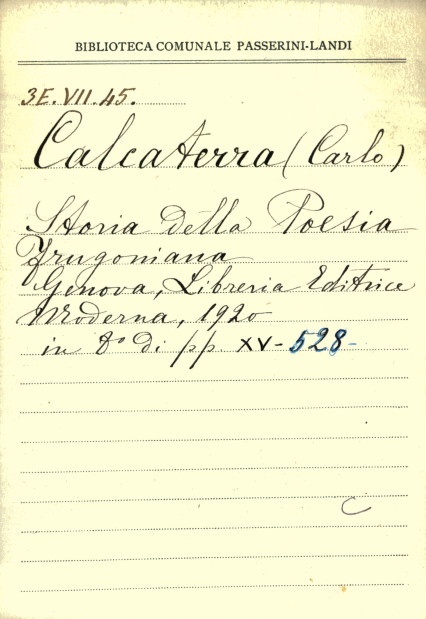 BIBLIOTECA COMUNALE PASSERINI-LANDI
3E.VII.45.
Calcaterra (Carlo)
Storia della Poesia
Frugoniana
Genova, Libreria Editrice
Moderna, 1920
in 8° di pp. XV-528-